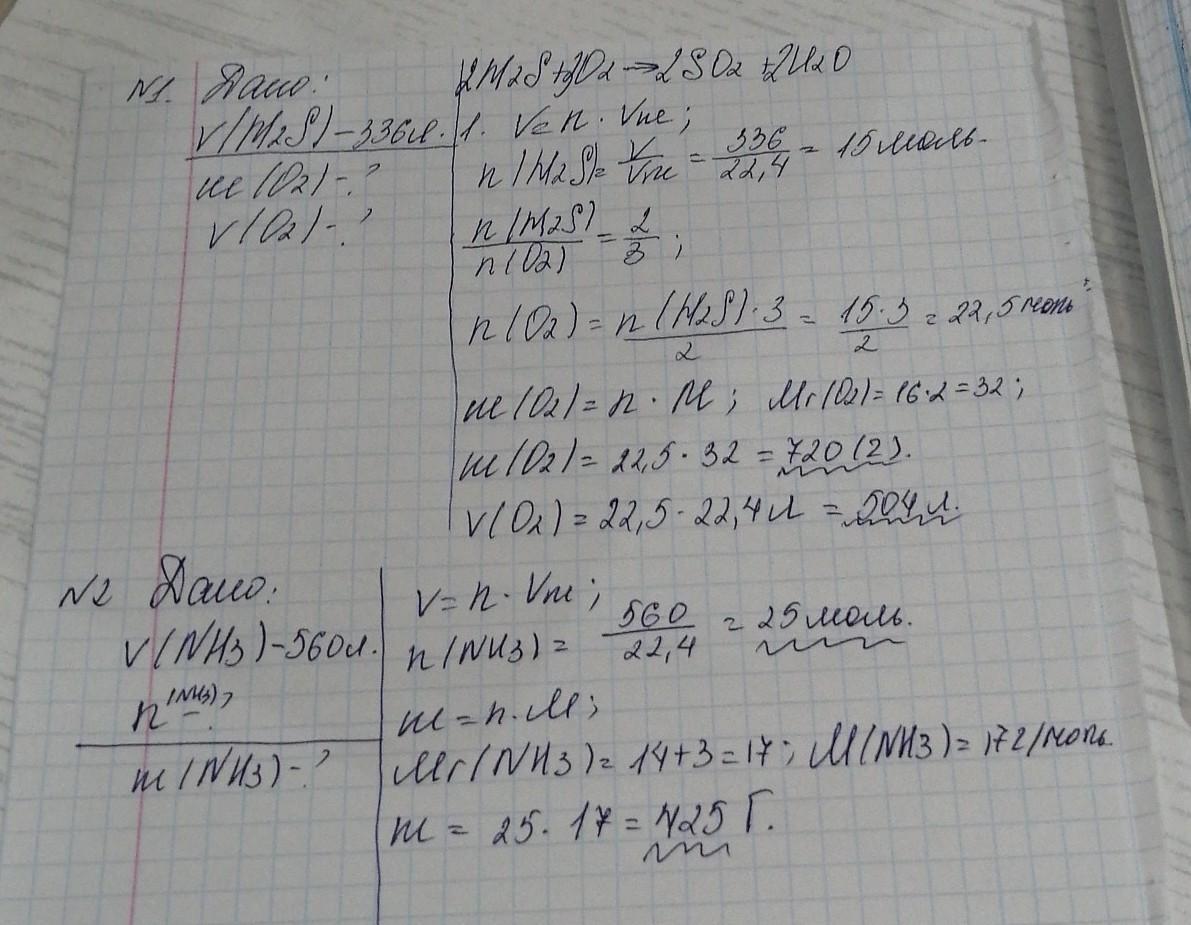 №1. Дано:
V(H2S)-336л.
m(O2)-?
V(O2)-?
2H2S+3O2→2SO2+2H2O
1. V=n·Vm;
n(H2S)=V/Vm=336/22,4=15моль.
n(H2S)/n(O2)=2/3;
n(O2)=n(H2S)·3/2=15·3/2=22,5моль
m(O2)=n·M; Mr(O2)=16·2=32;
m(O2)=22,5·32=720(г).
V(O2)=22,5·22,4л=504л.
№2 Дано:
V(NH3)-560л.
n(NH3)-?
m(NH3)-?
V=n·Vm;
n(NH3)=560/22,4=25моль.
m=n·M;
Mr(NH3)=14+3=17; M(NH3)=17г/моль.
m=25·17=425 Г.